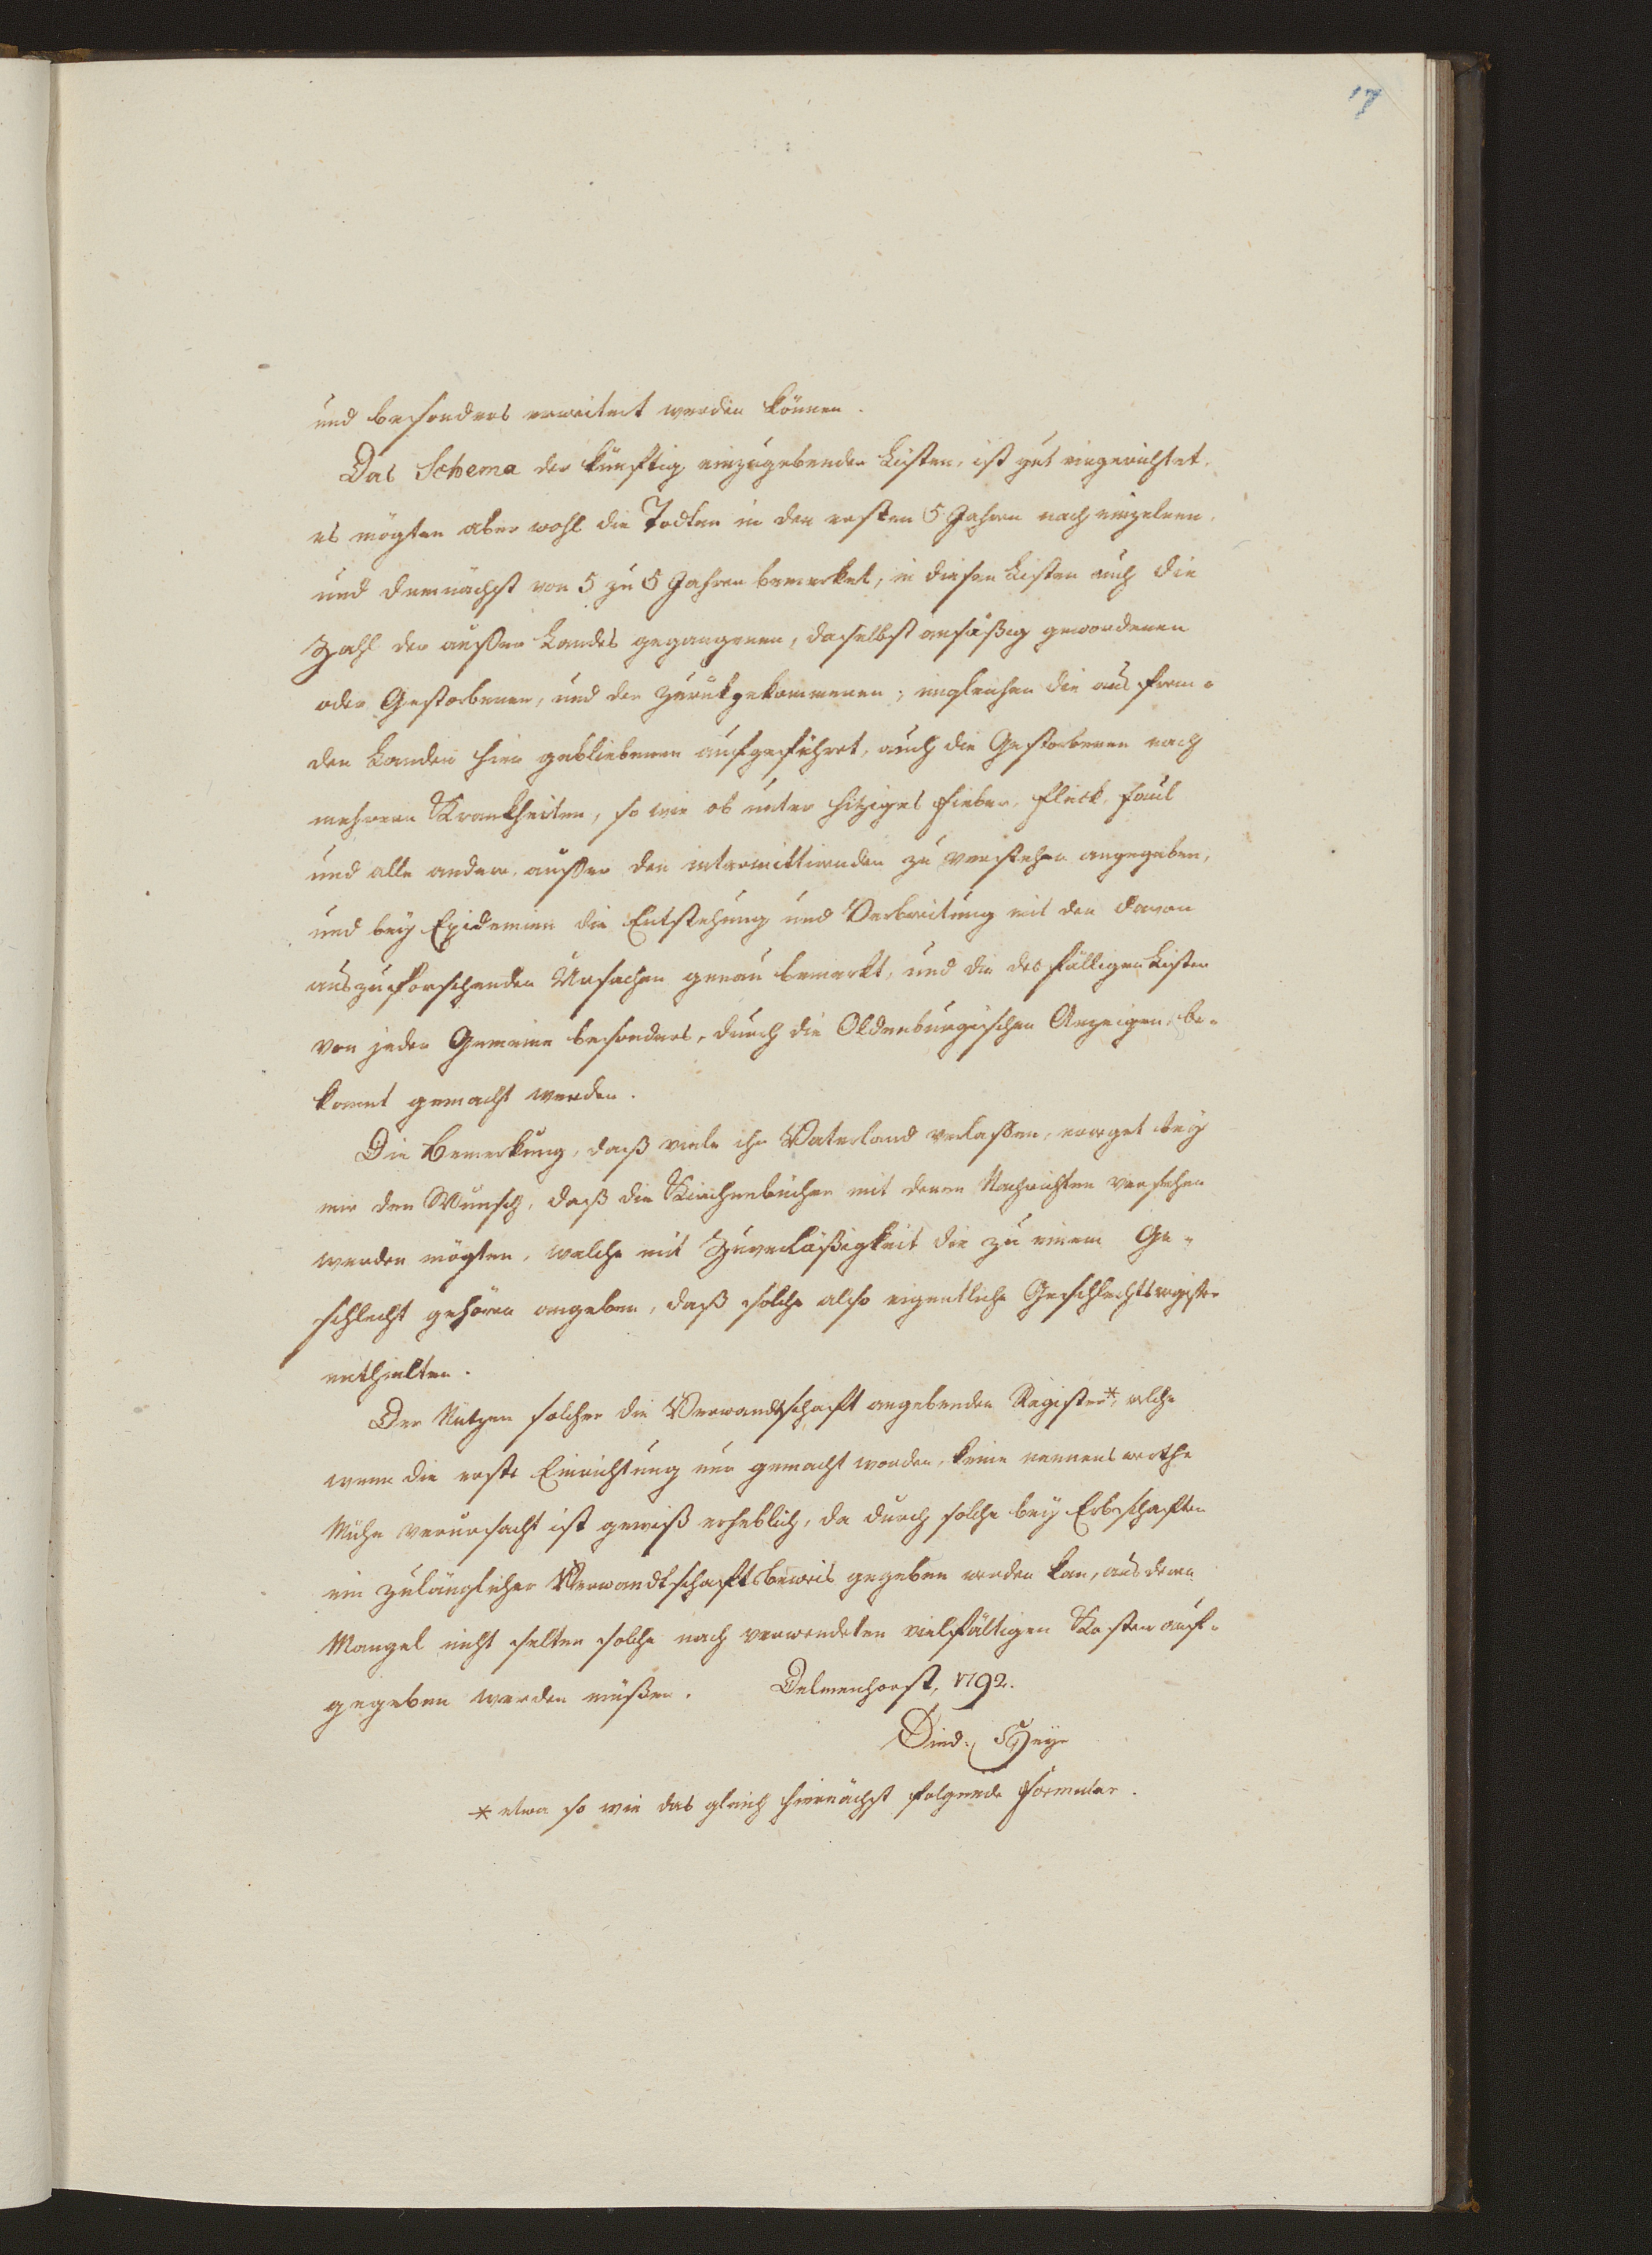 17
und besonders erweitert werden können.
Das Schema der künftig einzugebenden Listen, ist gut eingerichtet,
es mögten aber wohl die Todten in den ersten 5 Jahren nach einzelnen,
und demnächst von 5 zu 5 Jahren bemerket, in diesen Listen auch die
Zahl der außer Landes gegangenen, daselbst ansäßig gewordenen
oder Gestorbenen, und der zurükgekommenen; ingleichen die aus frem-
den Landen hier gebliebenen aufgeführet, auch die Gestorbenen nach
mehrern Krankheiten, so wie ob unter hitziges Fieber, Fleck, Faul
und alle andere, außer den intermittirenden zu verstehen angegeben,
und bey Epidemien die Entstehung und Verbreitung mit den davon
auszuforschenden Ursachen genau bemerkt, und die desfälligen Listen
von jeder Gemeine besonders, durch die Oldenburgischen Anzeigen, be-
kannt gemacht werden.
Die Bemerkung, daß viele ihr Vaterland verlaßen, erreget bey
mir den Wunsch, daß die Kirchenbücher mit denen Nachrichten versehen
werden mögten, welche mit Zuverläßigkeit die zu einem Ge-
schlecht gehören angeben, daß solche also eigentliche Geschlechtsregister
enthielten.
Der Nutzen solcher die Verwandtschaft angebenden Register*, welche
wenn die erste Einrichtung nur gemacht worden, keine nennenswerthe
Mühe verursacht ist gewiß erheblich, da durch solche bey Erbschaften
ein zulänglicher Verwandtschaftsbeweis gegeben werden kan, aus deren
Mangel nicht selten solche nach verwendeten vielfältigen Kosten auf-
gegeben werden müßen. Delmenhorst, 1792.
Died: Heye
* etwa so wie das gleich hiernächst folgende Formular.